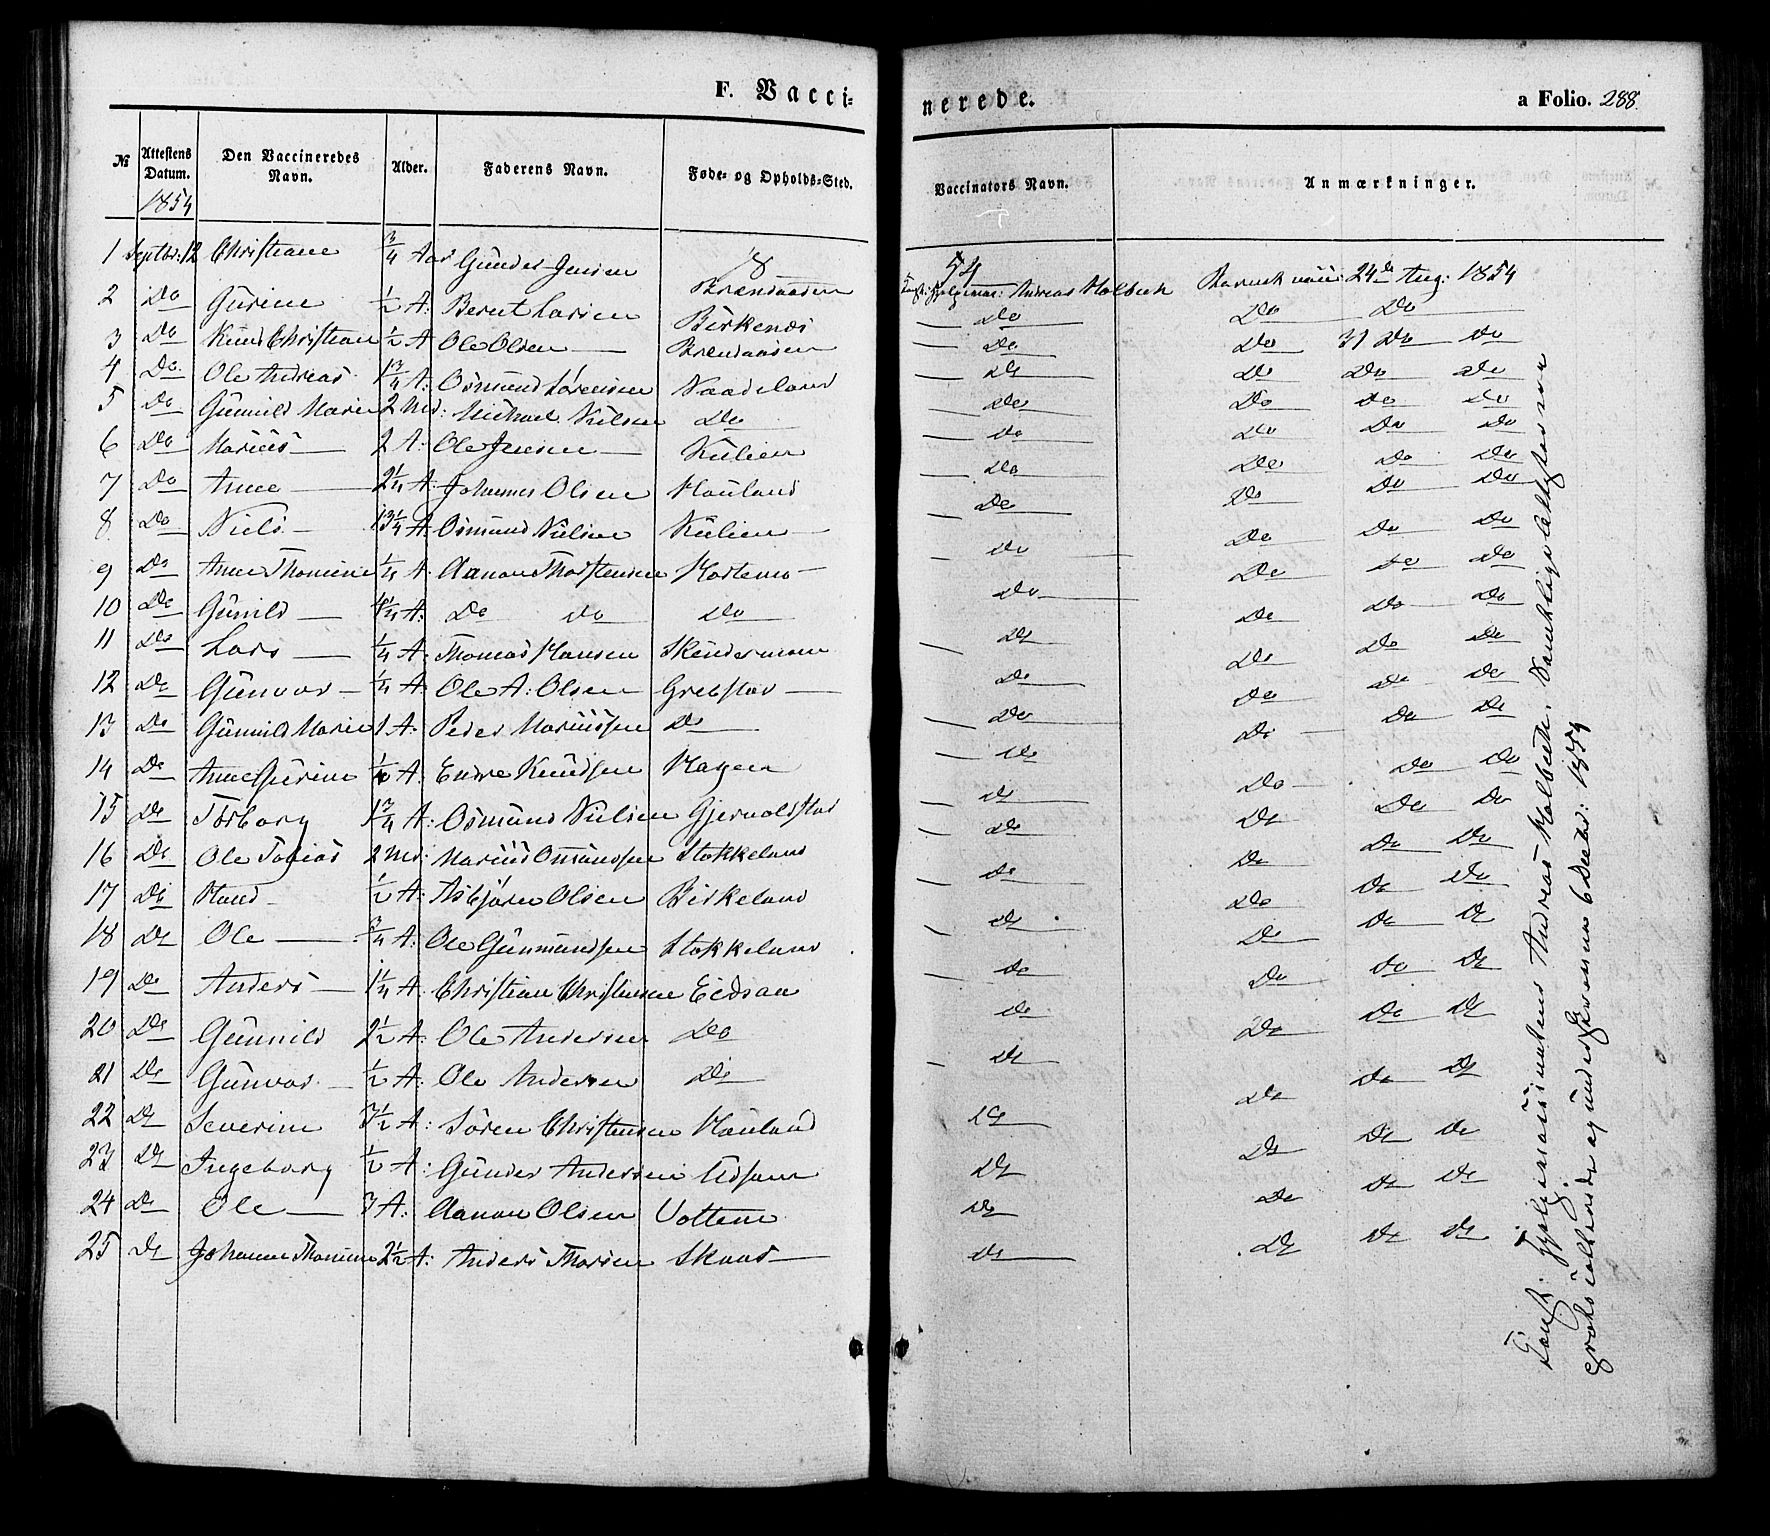 F. Vacci-
nerede.
a Folio. 288.
№ Attestens Datum. Den Vaccineredes Navn. Alder. Faderens Navn. Føde- og Opholds-Sted. Vaccinators Navn. Anmærkninger.
1854 18 54
1 Septbr: 12 Christiane 3/4 Aar Gunder Jensen Andreas Holbech 24de Aug: 1854
2 Do Gurine 1/2 A: Berut Larsen Birkenes Do Do Do
3 Do Knud Christian 1/2 A Ole Olsen — Do Do 31 Do Do
4 Do Ole Andreas 1 3/4 A: Osmund Sørensen Do Do Do Do
5 Do Gunnild Marie 2 Md: Michael Nielsen Do Do Do Do Do
6 Do Marius — 2 A: Ole Jensen — Do Do Do Do
7 Do Anne — 2 1/4 A: Johannes Olsen Hauland Do Do Do Do
8 Do Niels — Osmund Nielsen Do Do Do Do
9 Do Anne Thomine 1/4 A: Aanon Thorstensen Do Do Do Do
10 Do Gunild — Do Do Do Do Do Do Do
11 Do Lars — 1/4 A: Thomas Hansen Do Do Do Do
12 Do Gunvor — 1/4 A: Ole A: Olsen Grebstad — Do Do Do Do
13 Do Gunnild Marie 1 A: Peder Mariussen Do Do Do Do Do
14 Do Anne Gurine Endre Knudsen Hagen Do Do Do Do
15 Do Torborg 1 3/4 A: Osmund Nielsen Gjervoldstad Do Do Do Do
16 Do Ole Tobias 2 Md: Marius Osmundsen Stokkeland Do Do Do Do
17 Do Hans — 1/2 A: Asbjørn Olsen Birkeland Do Do Do Do
18 Do Ole — 3/4 A: Ole Gunmundsen Stokkeland Do Do Do Do
19 Do Anders — 1 1/4 A: Christian Christensen Do Do Do Do
20 Do Gunnild 2 1/2 A: Ole Andersen Do Do Do Do Do
21 Do Gunvor — 1/2 A: Ole Andersen Do Do Do Do Do
22 Do Severine 3 1/2 A: Søren Christensen Hauland Do Do Do Do
23 Do Ingeborg 1/2 A: Gunder Andersen Do Do Do Do
24 Do Ole — 3 A: Aanon Olsen Do Do Do Do
25 Do Johanne Thomine 2 1/2 A: Anders Thorsen Skaar — Do Do Do Do
Const. Andreas Holbech,
og 6 Decbr: 1854